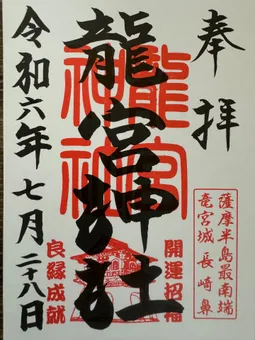 奉拝
龍宮神社
龍宮
神社
薩摩半島最南端
竜宮城 長崎鼻
開運招福
良縁成就
令和六年七月二十八日